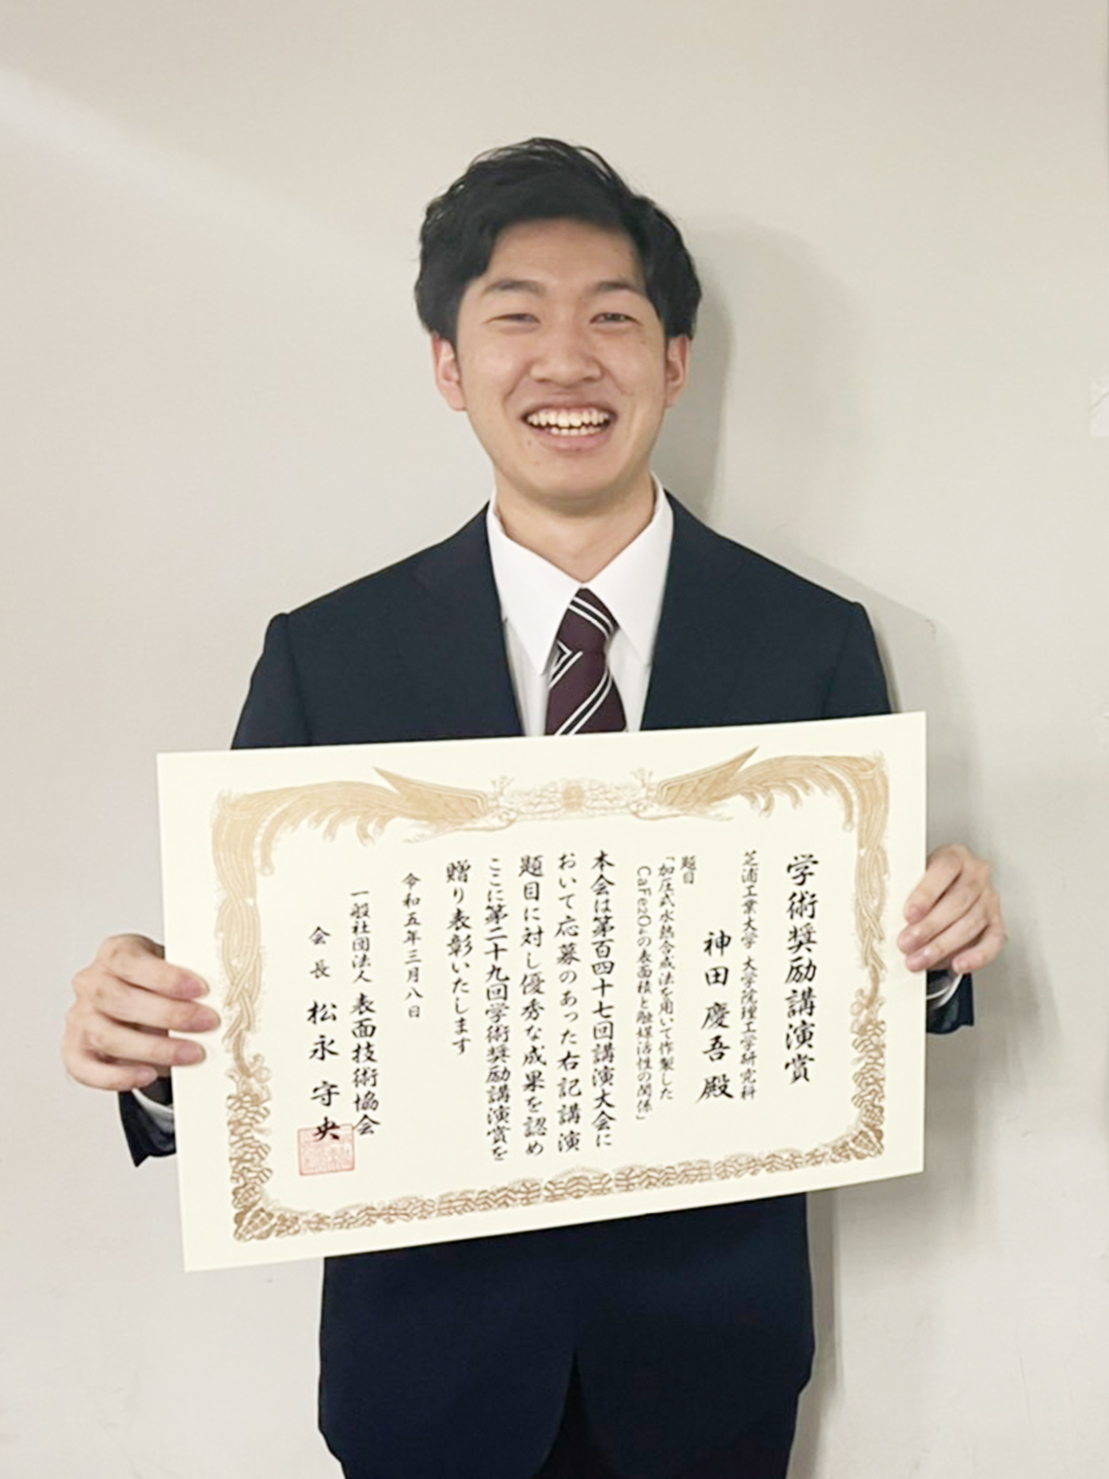 学術奨励講演賞
芝浦工業大学 大学院理工学研究科
神田慶吾 殿
題目
「加圧式水熱合成法を用いて作製した
CaFe₂O₄の表面積と触媒活性の関係」
本会は第百四十七回講演大会に
おいて応募のあった右記講演
題目に対し優秀な成果を認め
ここに第二十九回学術奨励講演賞を
贈り表彰いたします
令和五年三月八日
一般社団法人 表面技術協会
会長 松永守央